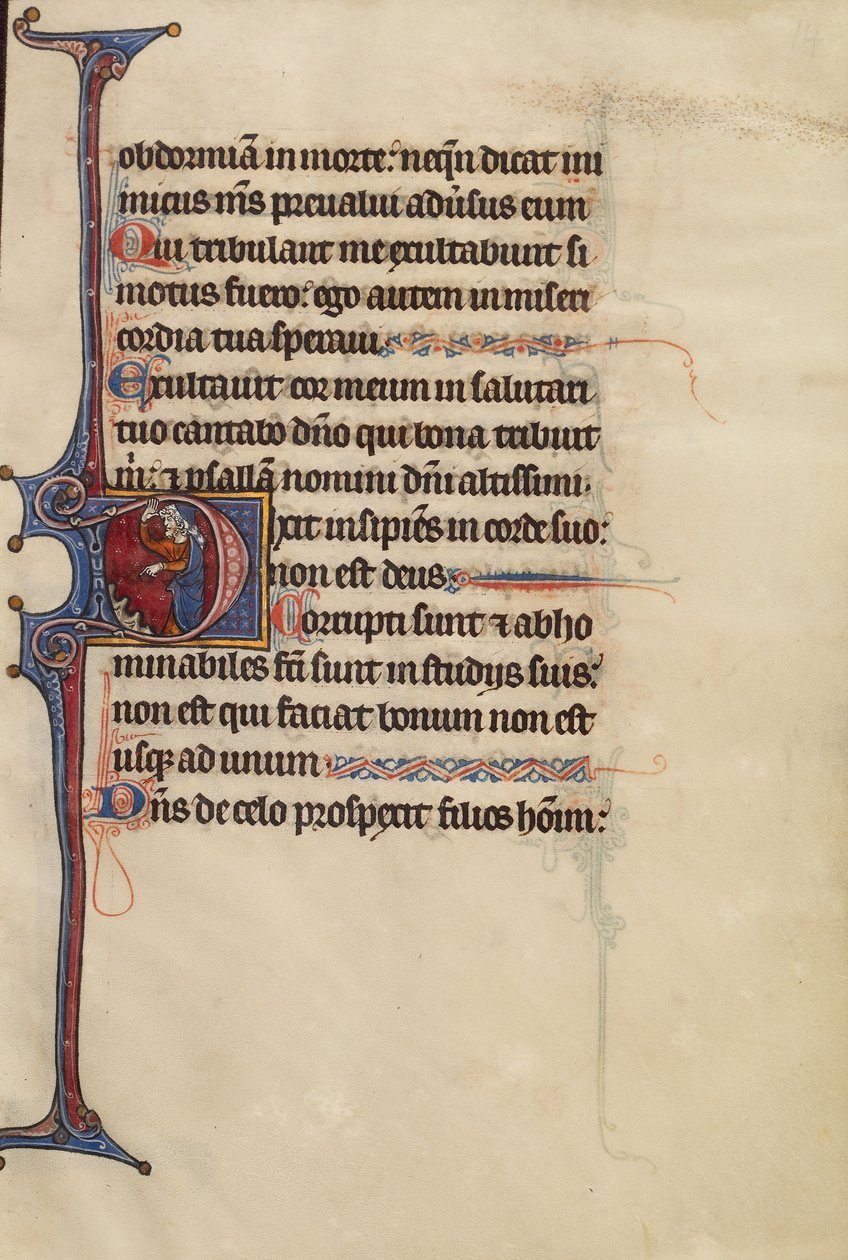 14
obdormiā in morte: neq̄n dicat ini
micus m̄s preualui adu̾sus eum
Qui tribulant me exultabunt si
motus fuero: ego autem in miseri
cordia tua speraui.
Exultauit cor meum in salutari
tuo cantabo dn̄o qui bona tribuit
m̄: ⁊ psallā nomini dn̄i altissimi.
Dixit insipiēs in corde suo:
non est deus.
Corrupti sunt ⁊ abho
minabiles fc̄i sunt in studijs suis:
non est qui faciat bonum non est
usq; ad unum.
Dn̄s de celo prospexit filios hōim: